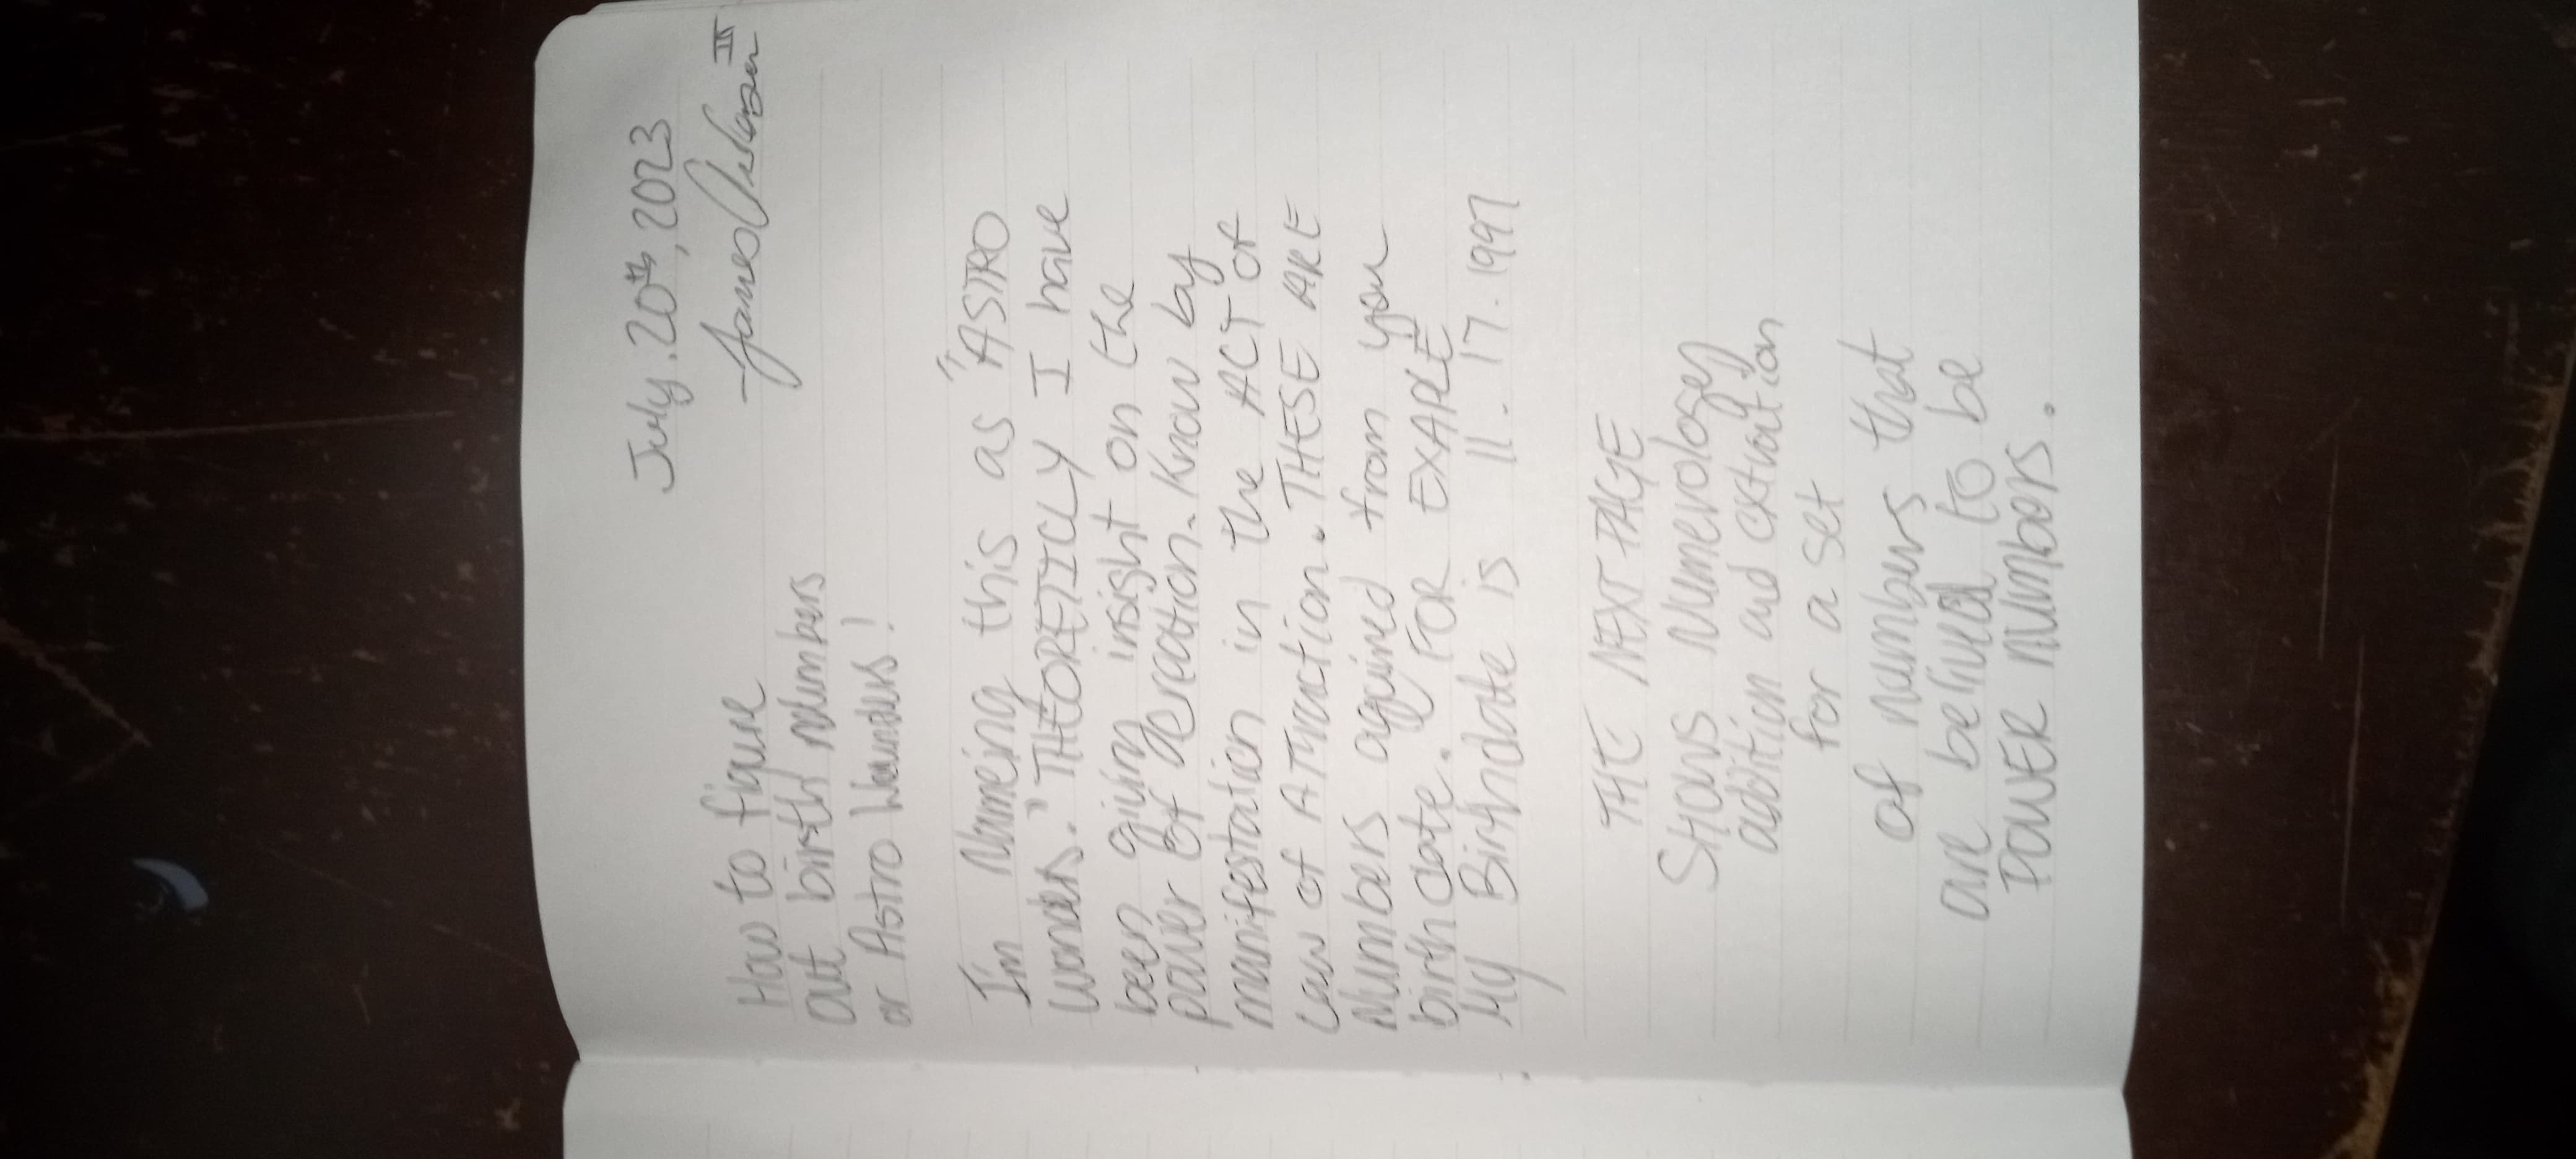 July. 20th, 2023
James III
How to figure
out birth numbers
or Astro Wounders!
I'm Numeing this as "ASTRO
Wonders." THEORETICLY I have
been giving insight on the
power of dereation. Know by
manifestation in the ACT of
Law of ATTraction. THESE ARE
Numbers aquired from you
birth date. FOR EXAPLE
My Birthdate is 11. 17. 1997
THE NEXT PAGE
SHOWS Numerology
addition and
for a set
of numbers that
are belived to be
POWER NUMBERS.